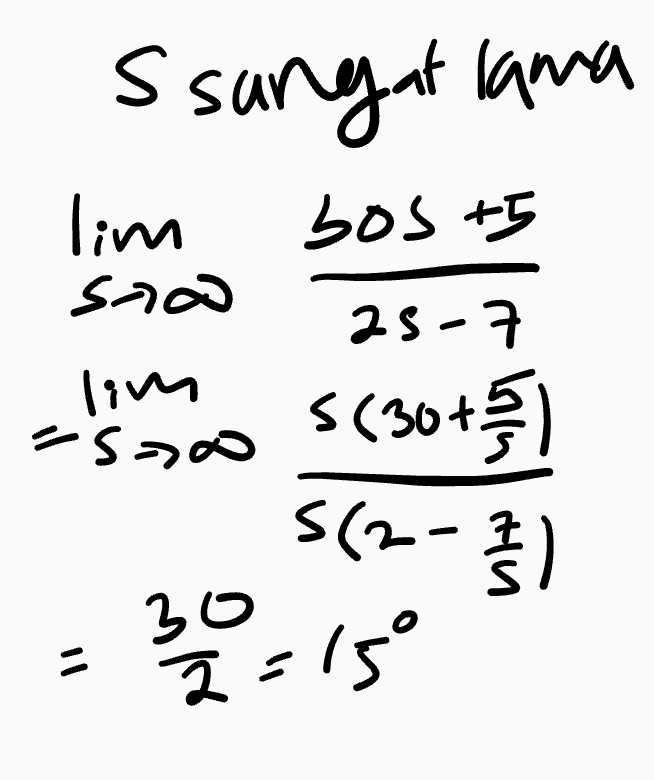 S sangat lama
lim s→∞ 30s + 5 / 2s - 7
= lim s→∞ s(30 + 5/s) / s(2 - 7/s)
= 30/2 = 15°